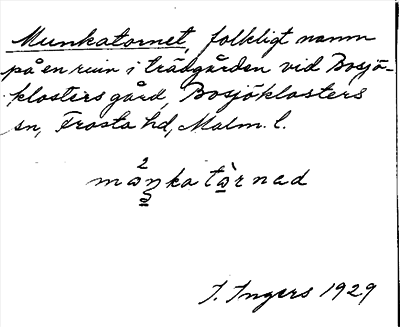 Munkatornet, folkligt namn
på en ruin i trädgården vid Bosjö-
klosters gård, Bosjöklosters
sn, Frosta hd, Malm. l.
2
mɔŋka tɔ̀rnad
I. Ingers 1929